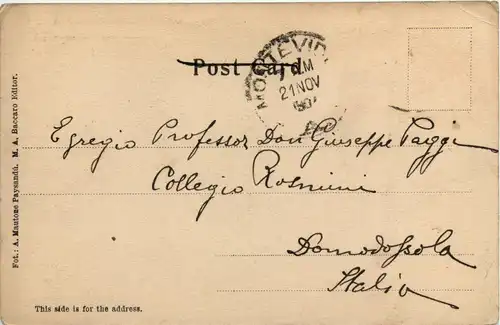 Post Card
MONTEVID
M
21 NOV
Egregio Professor Don Giuseppe Paggi
Collegio Rosmini
Domodossola
Italia
This side is for the address.
Fot.: A. Mautone Paysandú. M. A. Baccaro Editor.